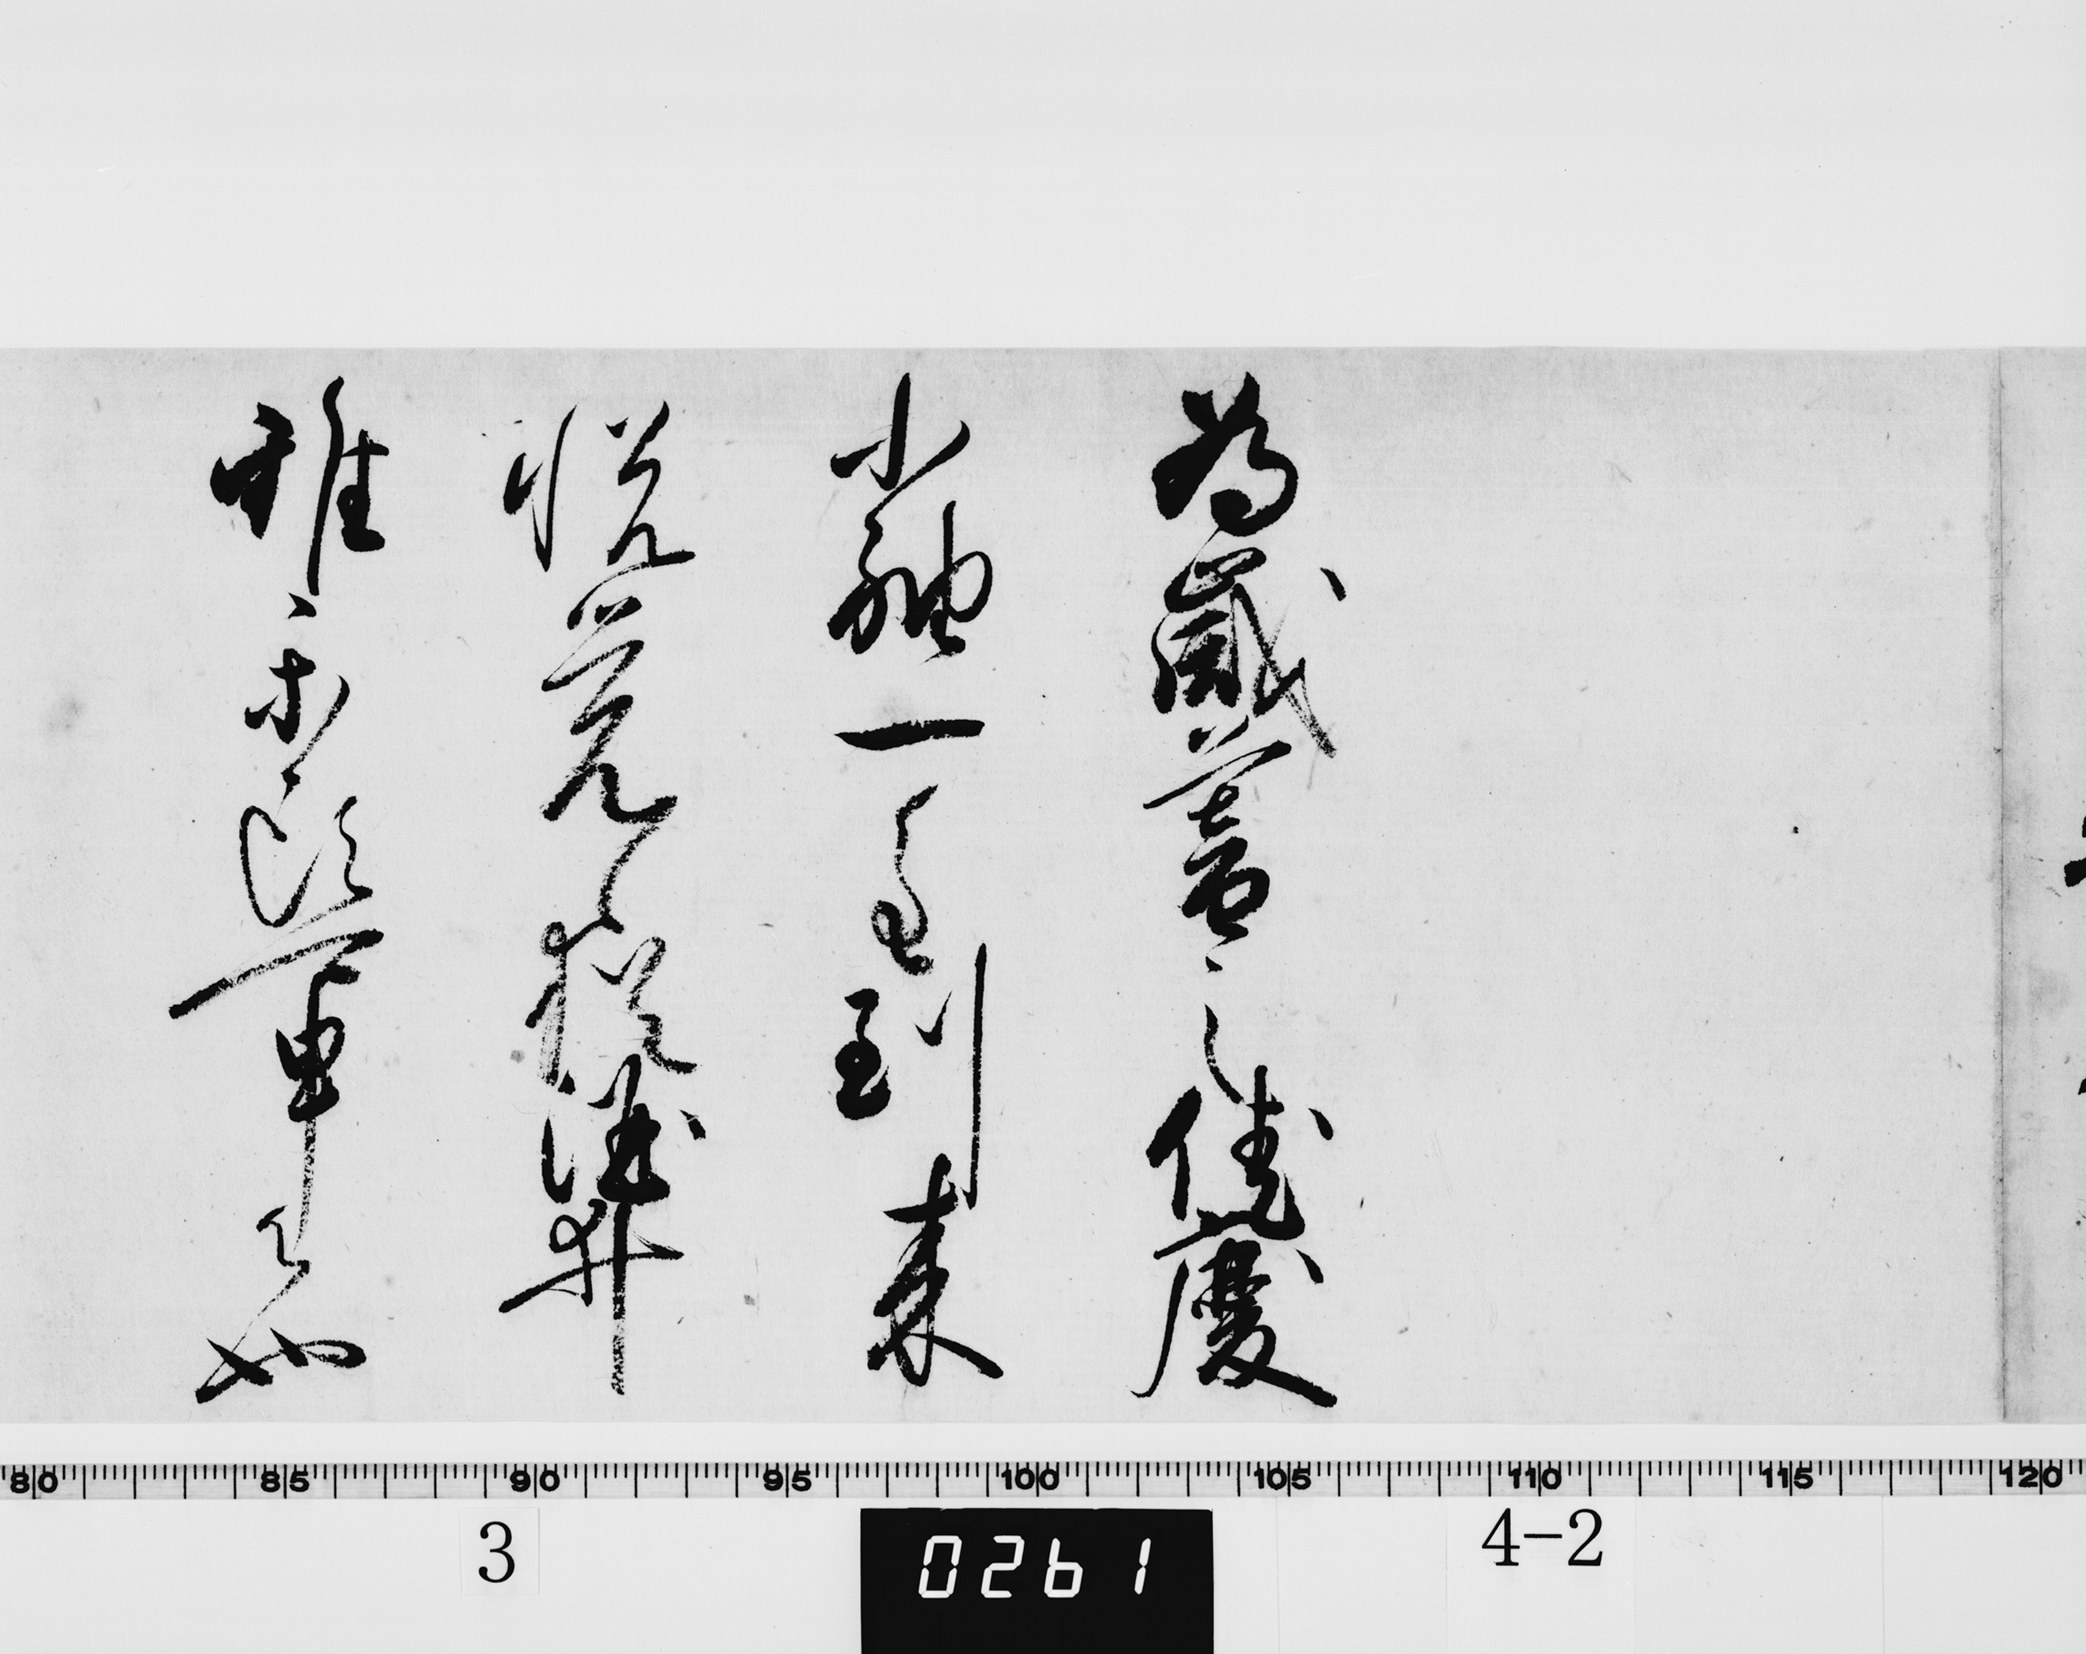 為歳暮之儀慶
小袖一重到来
悦覚候猶酒井
雅楽頭可申候也
80 85 90 95 100 105 110 115 120
3 0261 4-2